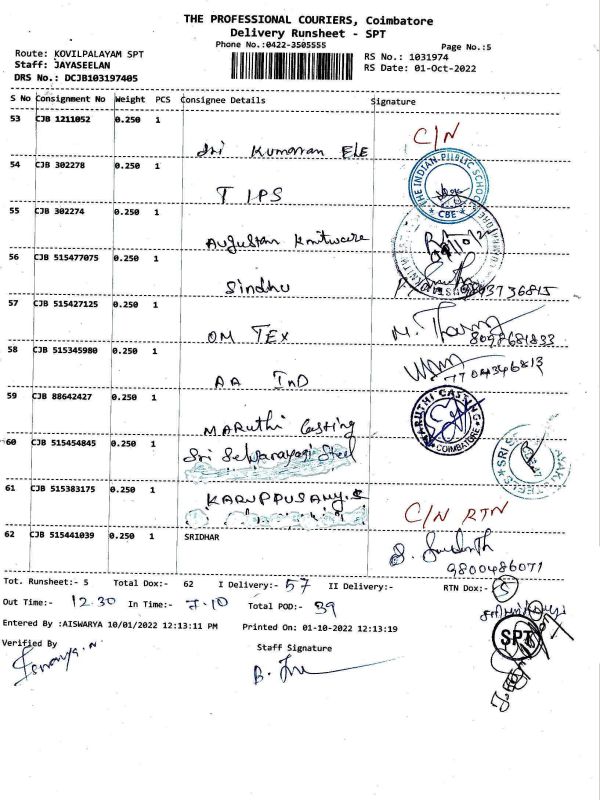 THE PROFESSIONAL COURIERS, Coimbatore
Delivery Runsheet - SPT
Phone No.:0422-3505555
Page No.:5
Route: KOVILPALAYAM SPT
RS No.: 1031974
Staff: JAYASEELAN
RS Date: 01-Oct-2022
DRS No.: DCJB103197405
S No Consignment No Weight PCS Consignee Details Signature
53 CJB 1211052 0.250 1
Sri Kumaran ELE C/N
54 CJB 302278 0.250 1
T IPS
THE INDIAN PUBLIC SCHOOL
* CBE *
55 CJB 302274 0.250 1
Augustan Knitware
56 CJB 515477075 0.250 1
Sindhu
57 CJB 515427125 0.250 1
OM TEX
8098681833
58 CJB 515345980 0.250 1
AA InD
7704346813
59 CJB 88642427 0.250 1
MARuthi Casting
MARUTHI CASTING
COIMBATORE
60 CJB 515454845 0.250 1
Steel
61 CJB 515383175 0.250 1
KARUPPUSAMY.S
C/N RTN
62 CJB 515441039 0.250 1 SRIDHAR
9800486071
Tot. Runsheet:- 5 Total Dox:- 62 I Delivery:- 57 II Delivery:- RTN Dox:- 5
Out Time:- 12.30 In Time:- 7.10 Total POD:- 39
Entered By :AISWARYA 10/01/2022 12:13:11 PM Printed On: 01-10-2022 12:13:19
SPT
Verified By
Staff Signature